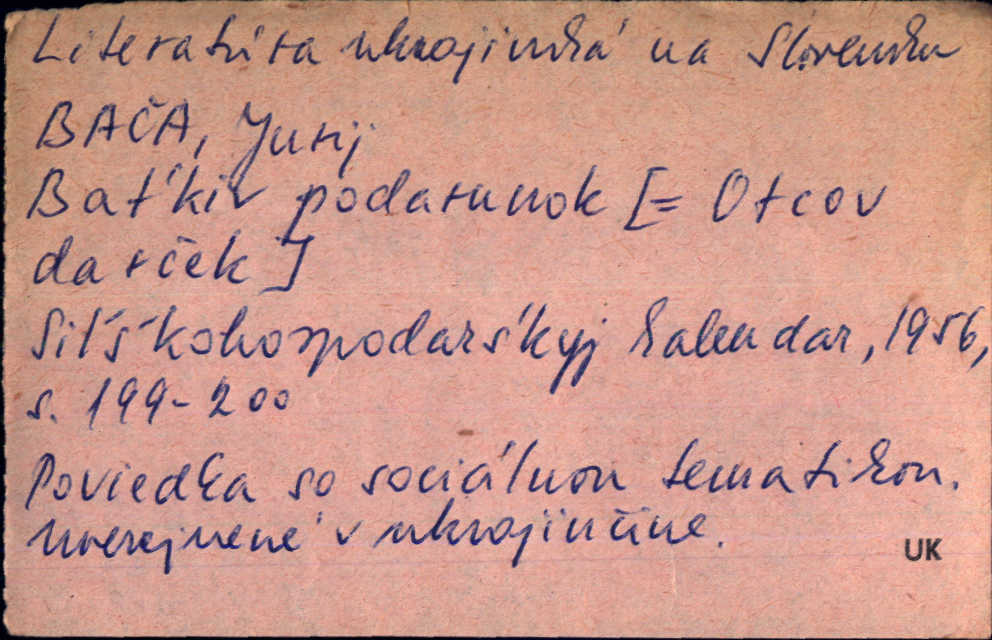 Literatúra ukrajinská na Slovensku
BAČA, Jurij
Bat'kiv podarunok [= Otcov
darček]
Sil's'kohospodars'kyj kalendar, 1956,
s. 199-200
Poviedka so sociálnou tematikou.
Uverejnené v ukrajinčine.
UK